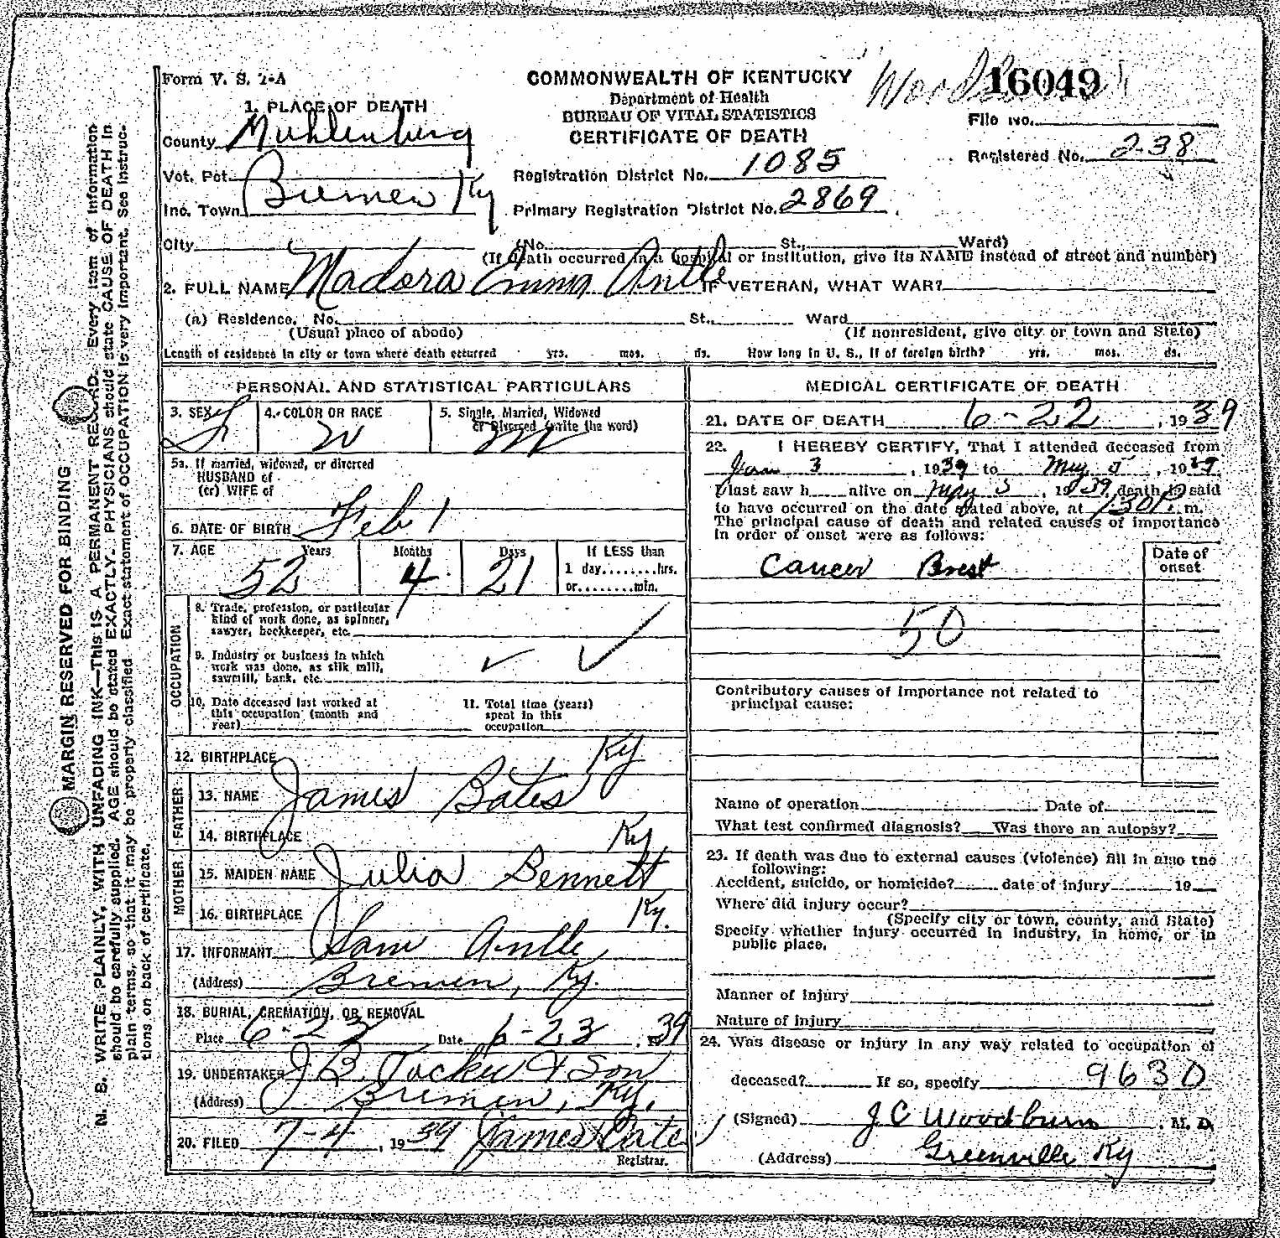 Form V. S. 1-A
COMMONWEALTH OF KENTUCKY
Department of Health
BUREAU OF VITAL STATISTICS
CERTIFICATE OF DEATH
16049
File No.
Registered No. 238
1. PLACE OF DEATH
County Muhlenberg
Vot. Pct.
Inc. Town Bremen Ky
Registration District No. 1085
Primary Registration District No. 2869
City (No. St., Ward)
(If death occurred in a hospital or institution, give its NAME instead of street and number)
2. FULL NAME Madora Emm Antle IF VETERAN, WHAT WAR?
(a) Residence, No. St., Ward
(Usual place of abode) (If nonresident, give city or town and State)
Length of residence in city or town where death occurred yrs. mos. ds. How long in U. S., if of foreign birth? yrs. mos. ds.
PERSONAL AND STATISTICAL PARTICULARS
3. SEX F
4. COLOR OR RACE W
5. Single, Married, Widowed
or Divorced (write the word) m
5a. If married, widowed, or divorced
HUSBAND of
(or) WIFE of
6. DATE OF BIRTH Feb 1
7. AGE Years Months Days If LESS than
52 4 21 1 day........hrs.
or........min.
OCCUPATION
8. Trade, profession, or particular
kind of work done, as spinner,
sawyer, bookkeeper, etc.
9. Industry or business in which
work was done, as silk mill,
sawmill, bank, etc.
10. Date deceased last worked at
this occupation (month and
year)
11. Total time (years)
spent in this
occupation
12. BIRTHPLACE Ky
FATHER
13. NAME James Bates
14. BIRTHPLACE Ky
MOTHER
15. MAIDEN NAME Julia Bennett
16. BIRTHPLACE Ky.
17. INFORMANT Sam Antle
(Address) Bremen, Ky.
18. BURIAL, CREMATION, OR REMOVAL
Place 6-23 Date 6-23, 39
19. UNDERTAKER J B Tucker & Son
(Address) Bremen, Ky.
20. FILED 7-4, 1939 James Cate
Registrar.
MEDICAL CERTIFICATE OF DEATH
21. DATE OF DEATH 6-22, 1939
22. I HEREBY CERTIFY, That I attended deceased from
Jan 3, 1939 to May 5, 19
I last saw h alive on May 5, 1939, death is said
to have occurred on the date stated above, at 130 P. m.
The principal cause of death and related causes of importance
in order of onset were as follows:
Date of
onset
Cancer Brest
50
Contributory causes of importance not related to
principal cause:
Name of operation Date of
What test confirmed diagnosis? Was there an autopsy?
23. If death was due to external causes (violence) fill in also the
following:
Accident, suicide, or homicide? date of injury 19
Where did injury occur?
(Specify city or town, county, and State)
Specify whether injury occurred in industry, in home, or in
public place.
Manner of Injury
Nature of Injury
24. Was disease or injury in any way related to occupation of
deceased? If so, specify 9630
(Signed) J C Woodburn, M. D.
(Address) Greenville Ky
MARGIN RESERVED FOR BINDING
N. B. WRITE PLAINLY, WITH UNFADING INK—THIS IS A PERMANENT RECORD. Every item of information
should be carefully supplied. AGE should be stated EXACTLY. PHYSICIANS should state CAUSE OF DEATH in
plain terms, so that it may be properly classified. Exact statement of OCCUPATION is very important. See instruc-
tions on back of certificate.